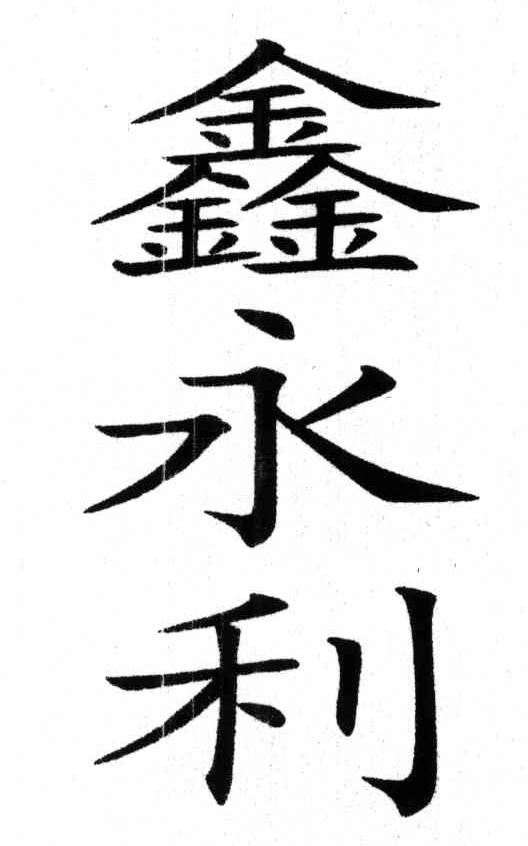 鑫永利